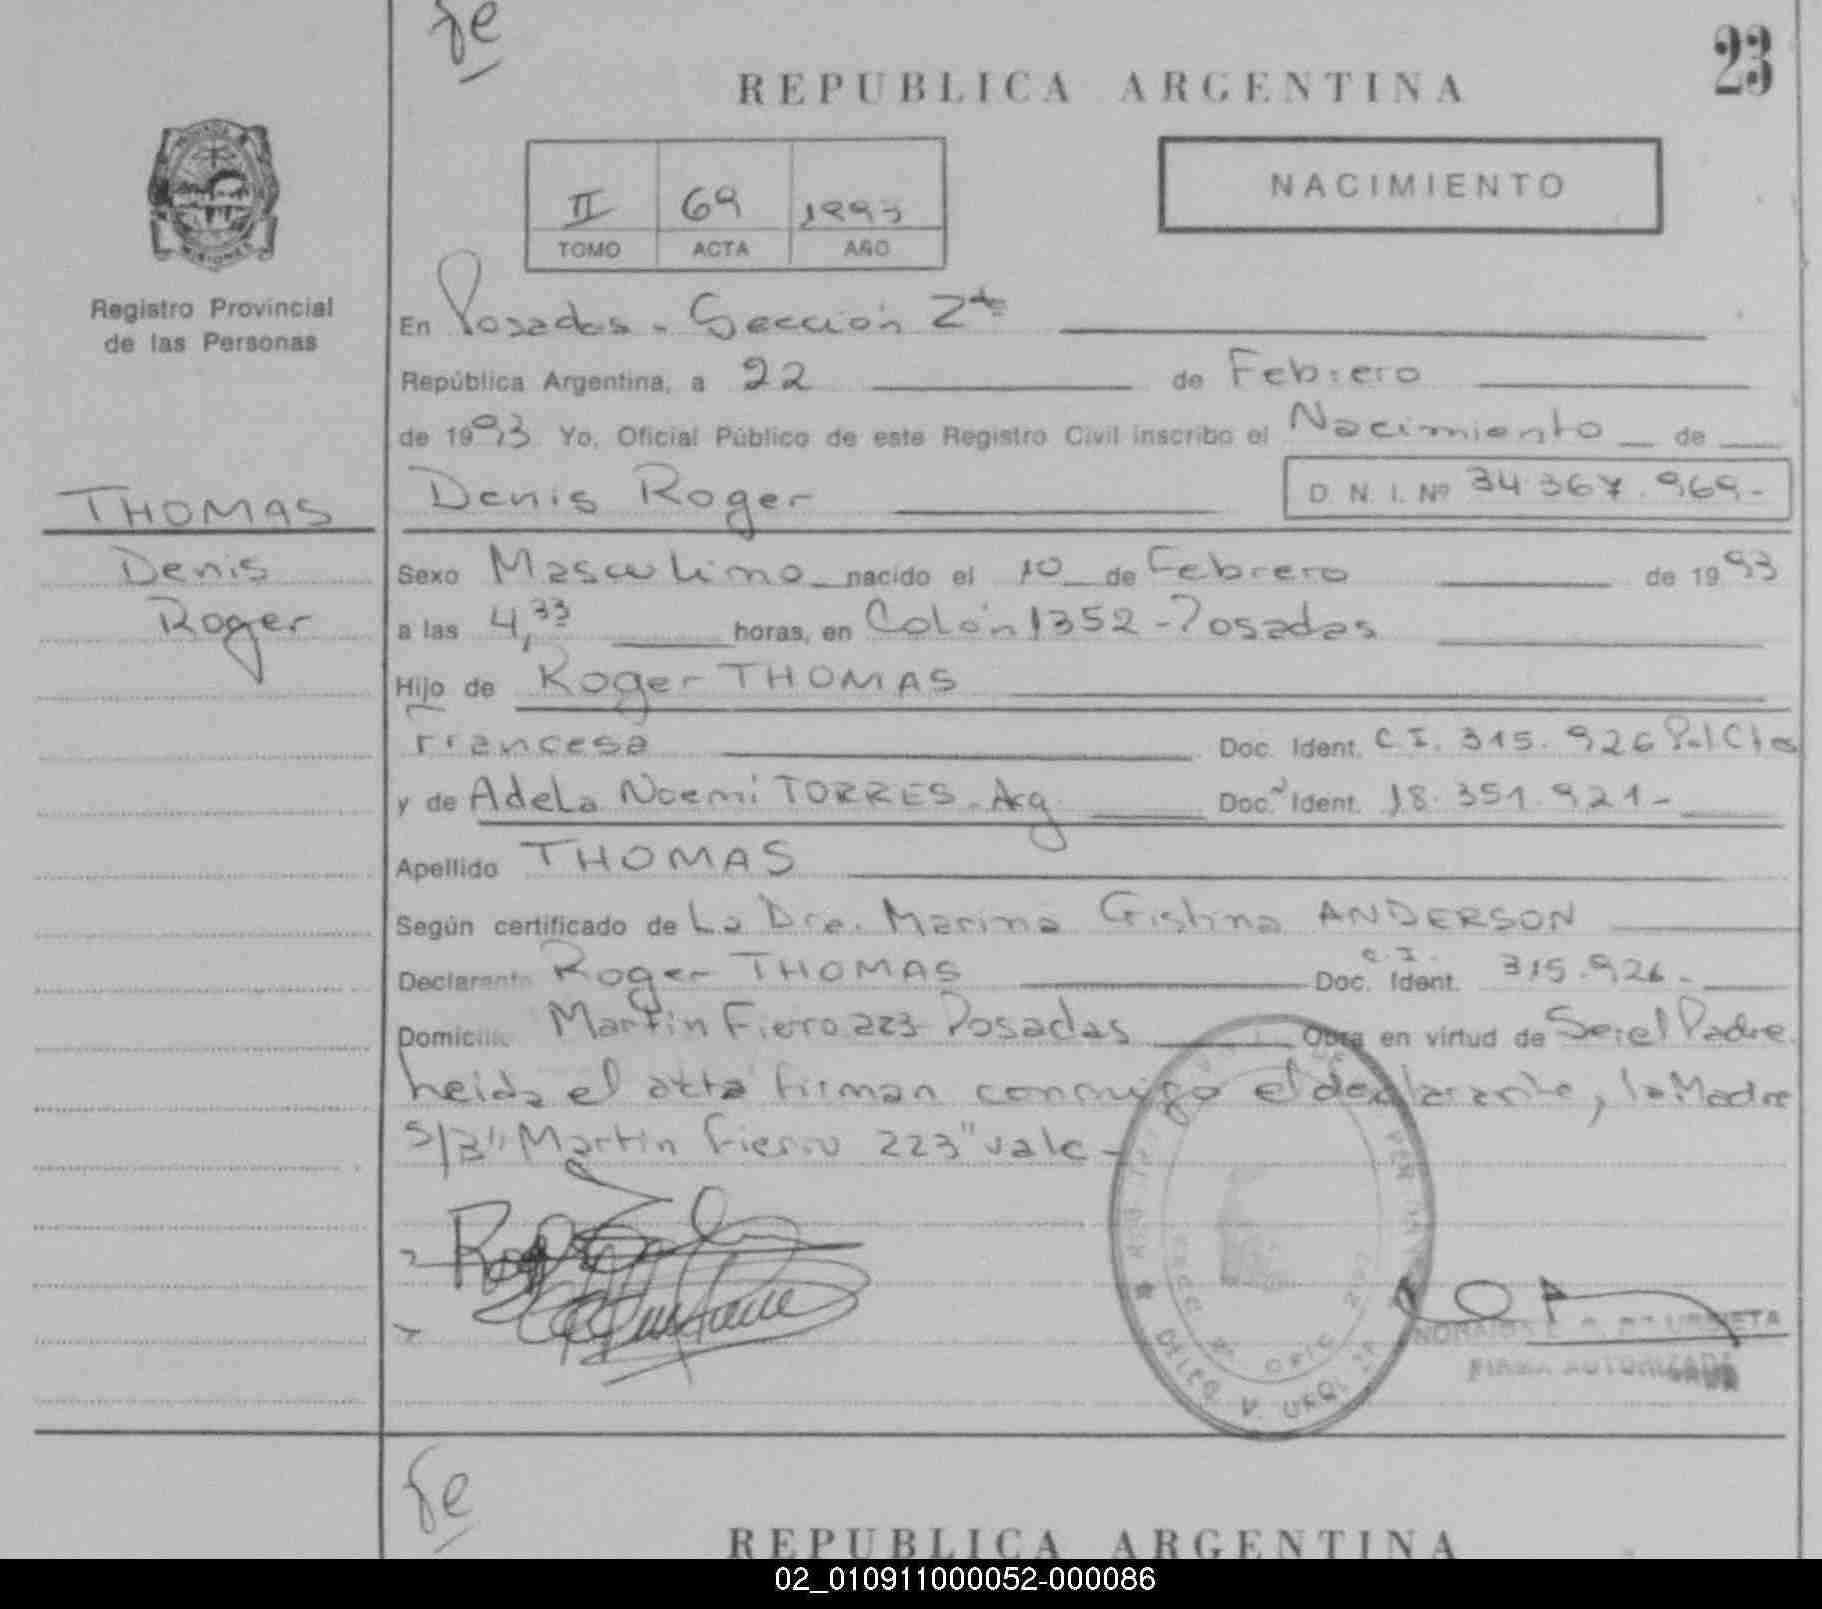 fe
23
REPUBLICA ARGENTINA
NACIMIENTO
II 69 1993
TOMO ACTA AÑO
MISIONES
Registro Provincial
de las Personas
En Posadas - Sección 2da
República Argentina, a 22 de Febrero
de 1993 Yo, Oficial Público de este Registro Civil inscribo el Nacimiento de
THOMAS
Denis
Roger
Denis Roger D. N. I. Nº 34.367.969.-
Sexo Masculino nacido el 10 de Febrero de 1993
a las 4,33 horas, en Colón 1352 - Posadas
Hijo de Roger THOMAS
Francesa Doc. Ident. C.I. 315.926 Pol Ctes
y de Adela Noemi TORRES - Arg Doc. Ident. 18.351.921-
Apellido THOMAS
Según certificado de La Dra. Marina Cristina ANDERSON
Declarante Roger THOMAS Doc. Ident. C.I. 315.926-
Domicilio Martin Fierro 223 Posadas Obra en virtud de Ser el Padre.
Leida el acta firman conmigo el declarante, la Madre
S/B "Martin Fierro 223" vale -
DELEG. V. URQ.
OFIC.
DE URRIETA
FIRMA AUTORIZADA
fe
REPUBLICA ARGENTINA
02_010911000052-000086